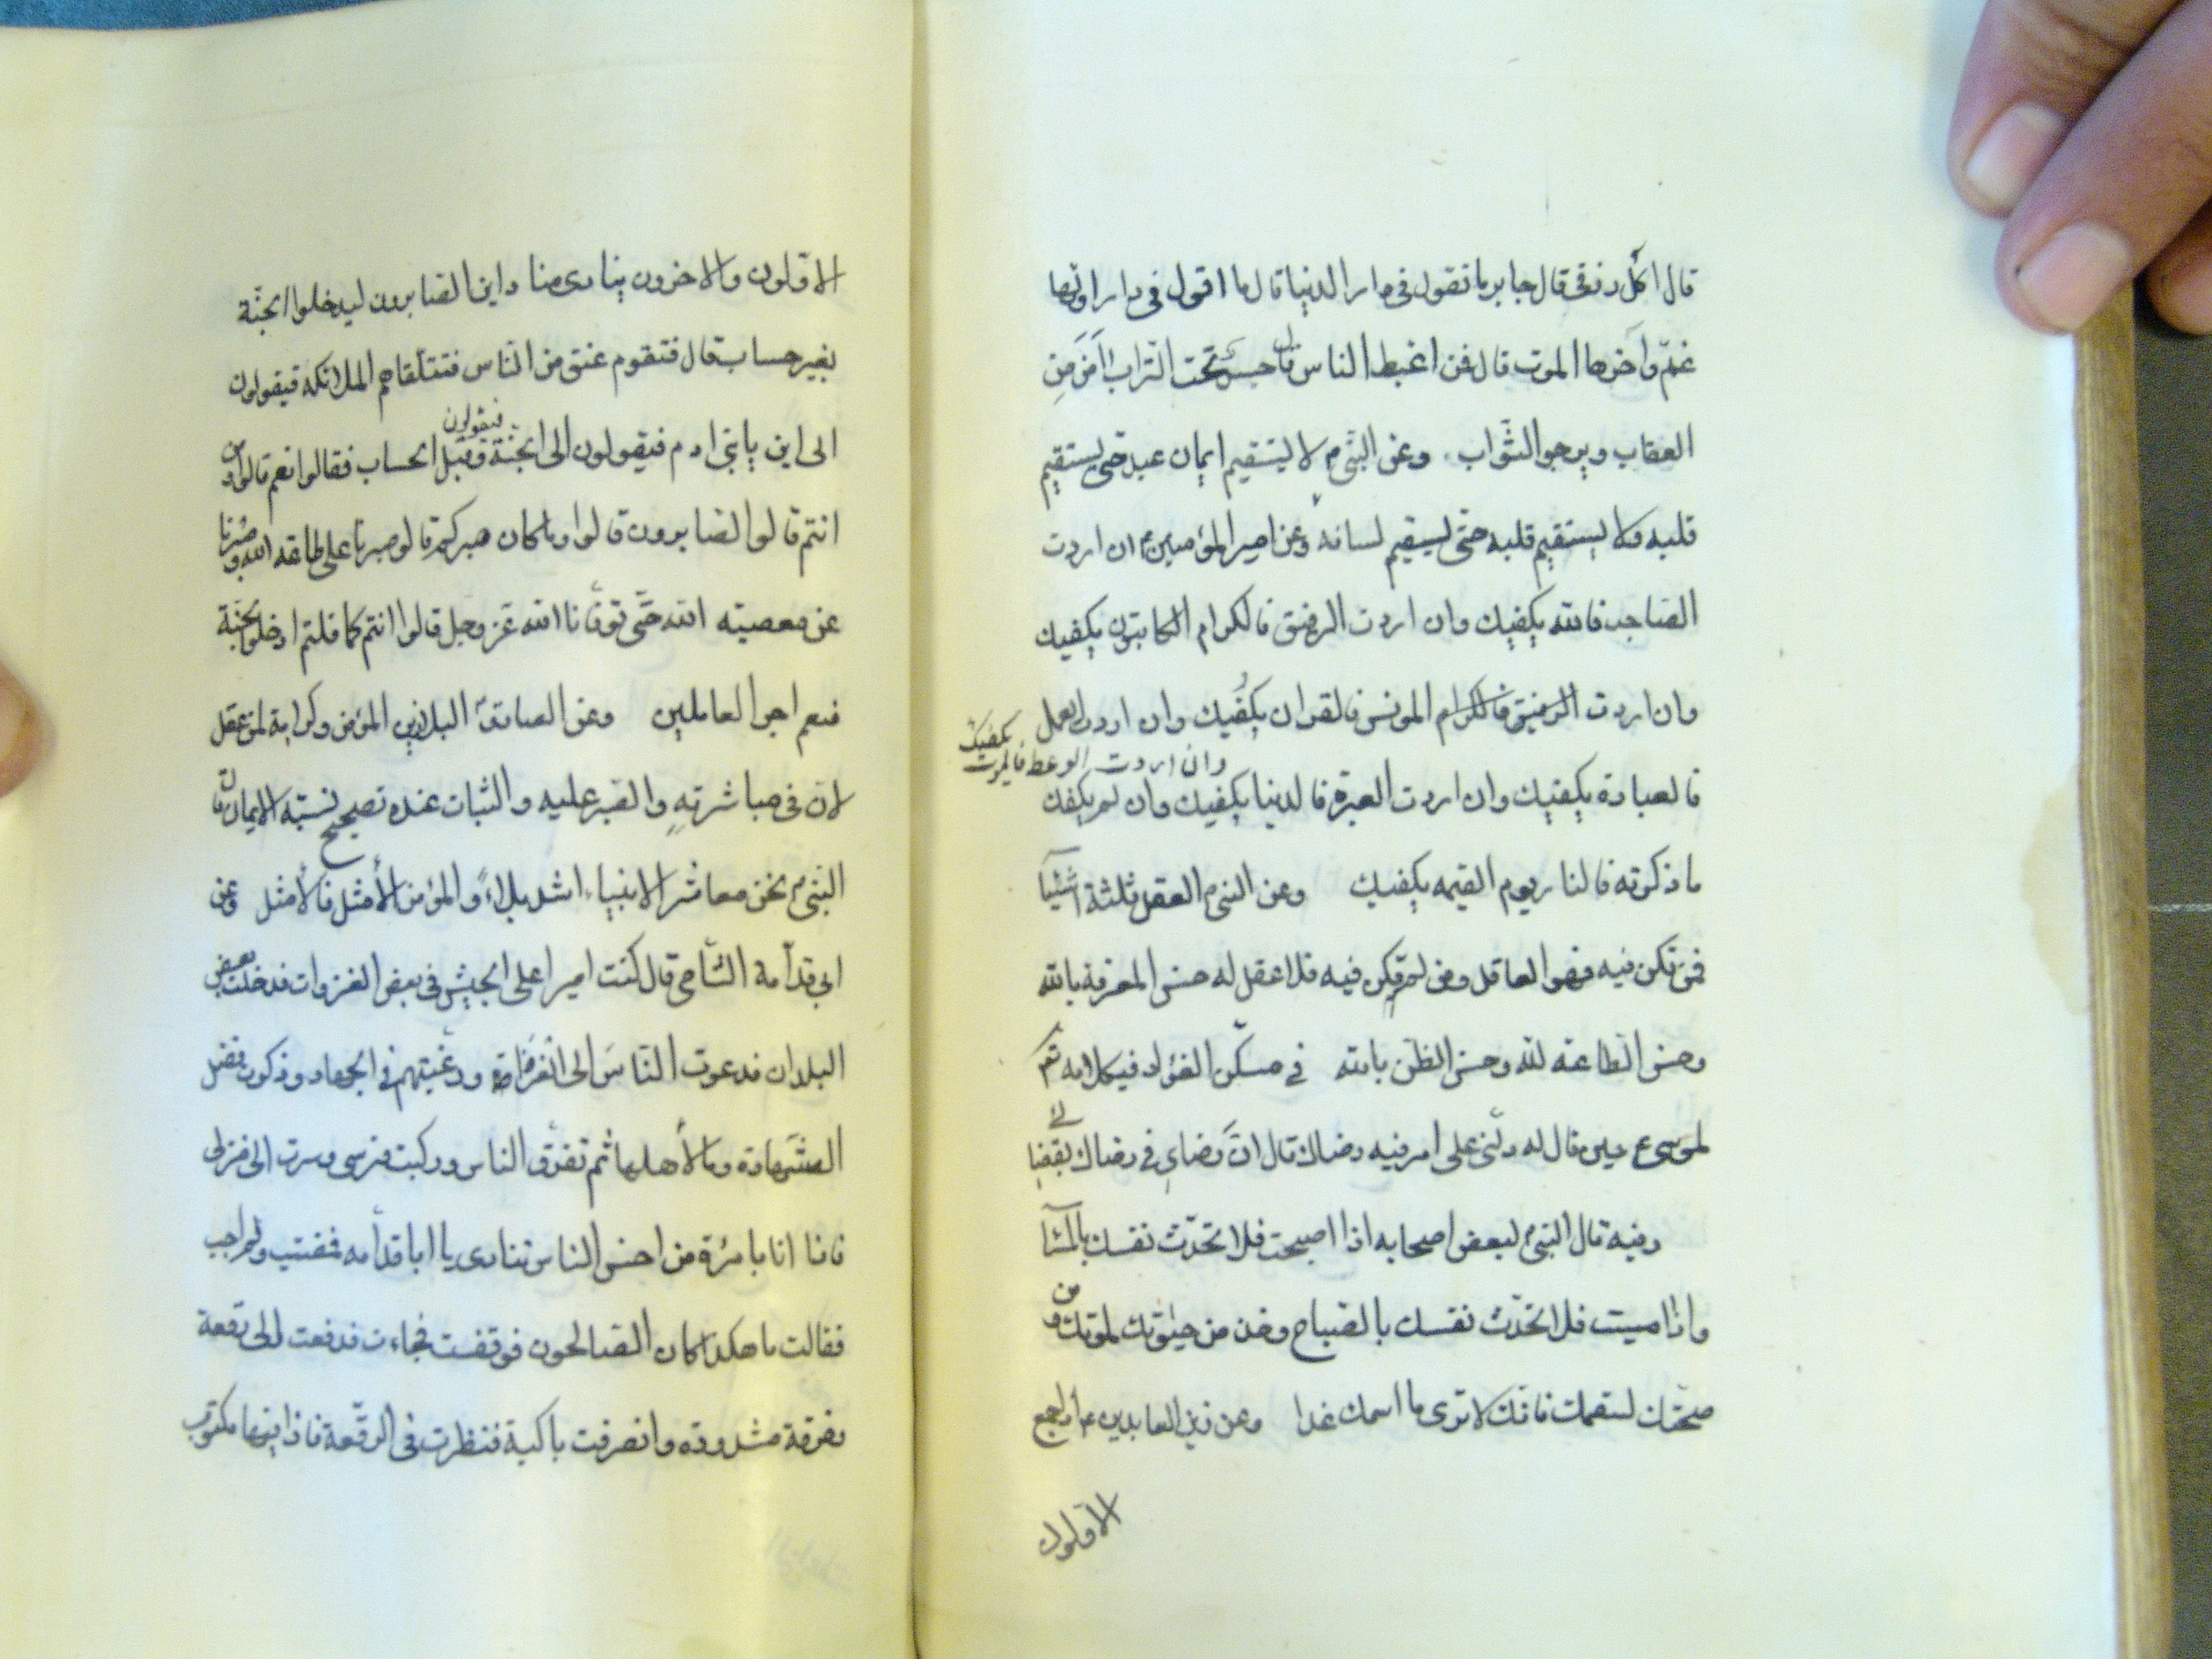 قال اكل رزقى قال جابر ما تقول فى دار الدنيا قال ما اقول فى دار اولها
غمّ وآخرها الموت قال فمن اغبط الناس قال جسد تحت التراب اَمِنَ مِنَ
العقاب ويرجو الثّواب وعن النبىّ م لا يستقيم ايمان عبد حتى يستقيم
قلبه ولا يستقيم قلبه حتى يستقيم لسانه وعن امير المؤمنين ع ان اردت
الصاحب فالله يكفيك وان اردت الرفيق فالكرام الكاتبون يكفيك
وان اردت الرفيق فالكرام المونس فالقران يكفيك وان اردت العمل
وان اردت الوعظ فالموت يكفيك
فالعبادة يكفيك وان اردت العبرة فالدنيا يكفيك وان لم يكفك
ما ذكرته فالنار يوم القيمه يكفيك وعن النبى م العقل ثلثة اشيآ
فمن تكن فيه فهو العاقل ومن لم تكن فيه فلا عقل له حسن المعرفة بالله
وحسن الطاعة لله وحسن الظن بالله فى مسكّن الفؤاد فى كلامه تعم
لموسى ع حين قال له دلّنى على امر فيه رضاك قال انّ رضاى فى رضاك بقضائى
وفيه قال النبى م لبعض اصحابه اذا اصبحت فلا تحدّث نفسك بالمسآ
واذا امسيت فلا تحدّث نفسك بالصباح وخذ من حيوتك لموتك ومن
صحتك لسقمك فانّك لا تدرى ما اسمك غدا وعن زين العابدين ع اذا جمع
الاولون
الاولون والاخرون ينادى مناد اين الصابرون ليدخلوا الجنّة
بغير حساب قال فتقوم عنق من النّاس فتتلقاهم الملائكه فيقولون
الى اين يا بنى ادم فيقولون الى الجنّة فيقولون وقبل الحساب فقالوا نعم قالوا ومن
انتم قالوا الصابرون قالوا وما كان صبركم قالوا صبرنا على طاعة الله وصبرنا
عن معصية الله حتّى توفّانا الله عز وجل قالوا انتم كما قلتم ادخلوا الجنّة
فنعم اجر العاملين وعن الصادق ع البلا زين المؤمن وكرامة لمن عقل
لان فى مباشرته والصبر عليه والثبات عنده تصحيح نسبة الايمان قال
النبىّ م نحن معاشر الانبياء اشد بلاءً والمؤمن الأمثل فالأمثل وعن
ابى قدآمة الشّامى قال كنت اميرا على الجيش فى بعض الغزوات فدخلت بعض
البلدان فدعوت النّاسَ الى الغزاة ورغّبتهم فى الجهاد وذكرت فضل
الشّهادة وما لأهلها ثم تفرّق الناس وركبت فرسى وسرت الى منزلى
فاذا انا بامرئة من احسن الناس تنادى يا ابا قدأمه فمضيت ولم اجب
فقالت ما هكذا كان الصالحون فوقفت فجاءت فدفعت الى رقعة
وخرقة مشدودة وانصرفت باكية فنظرت فى الرقعة فاذا فيها مكتوب